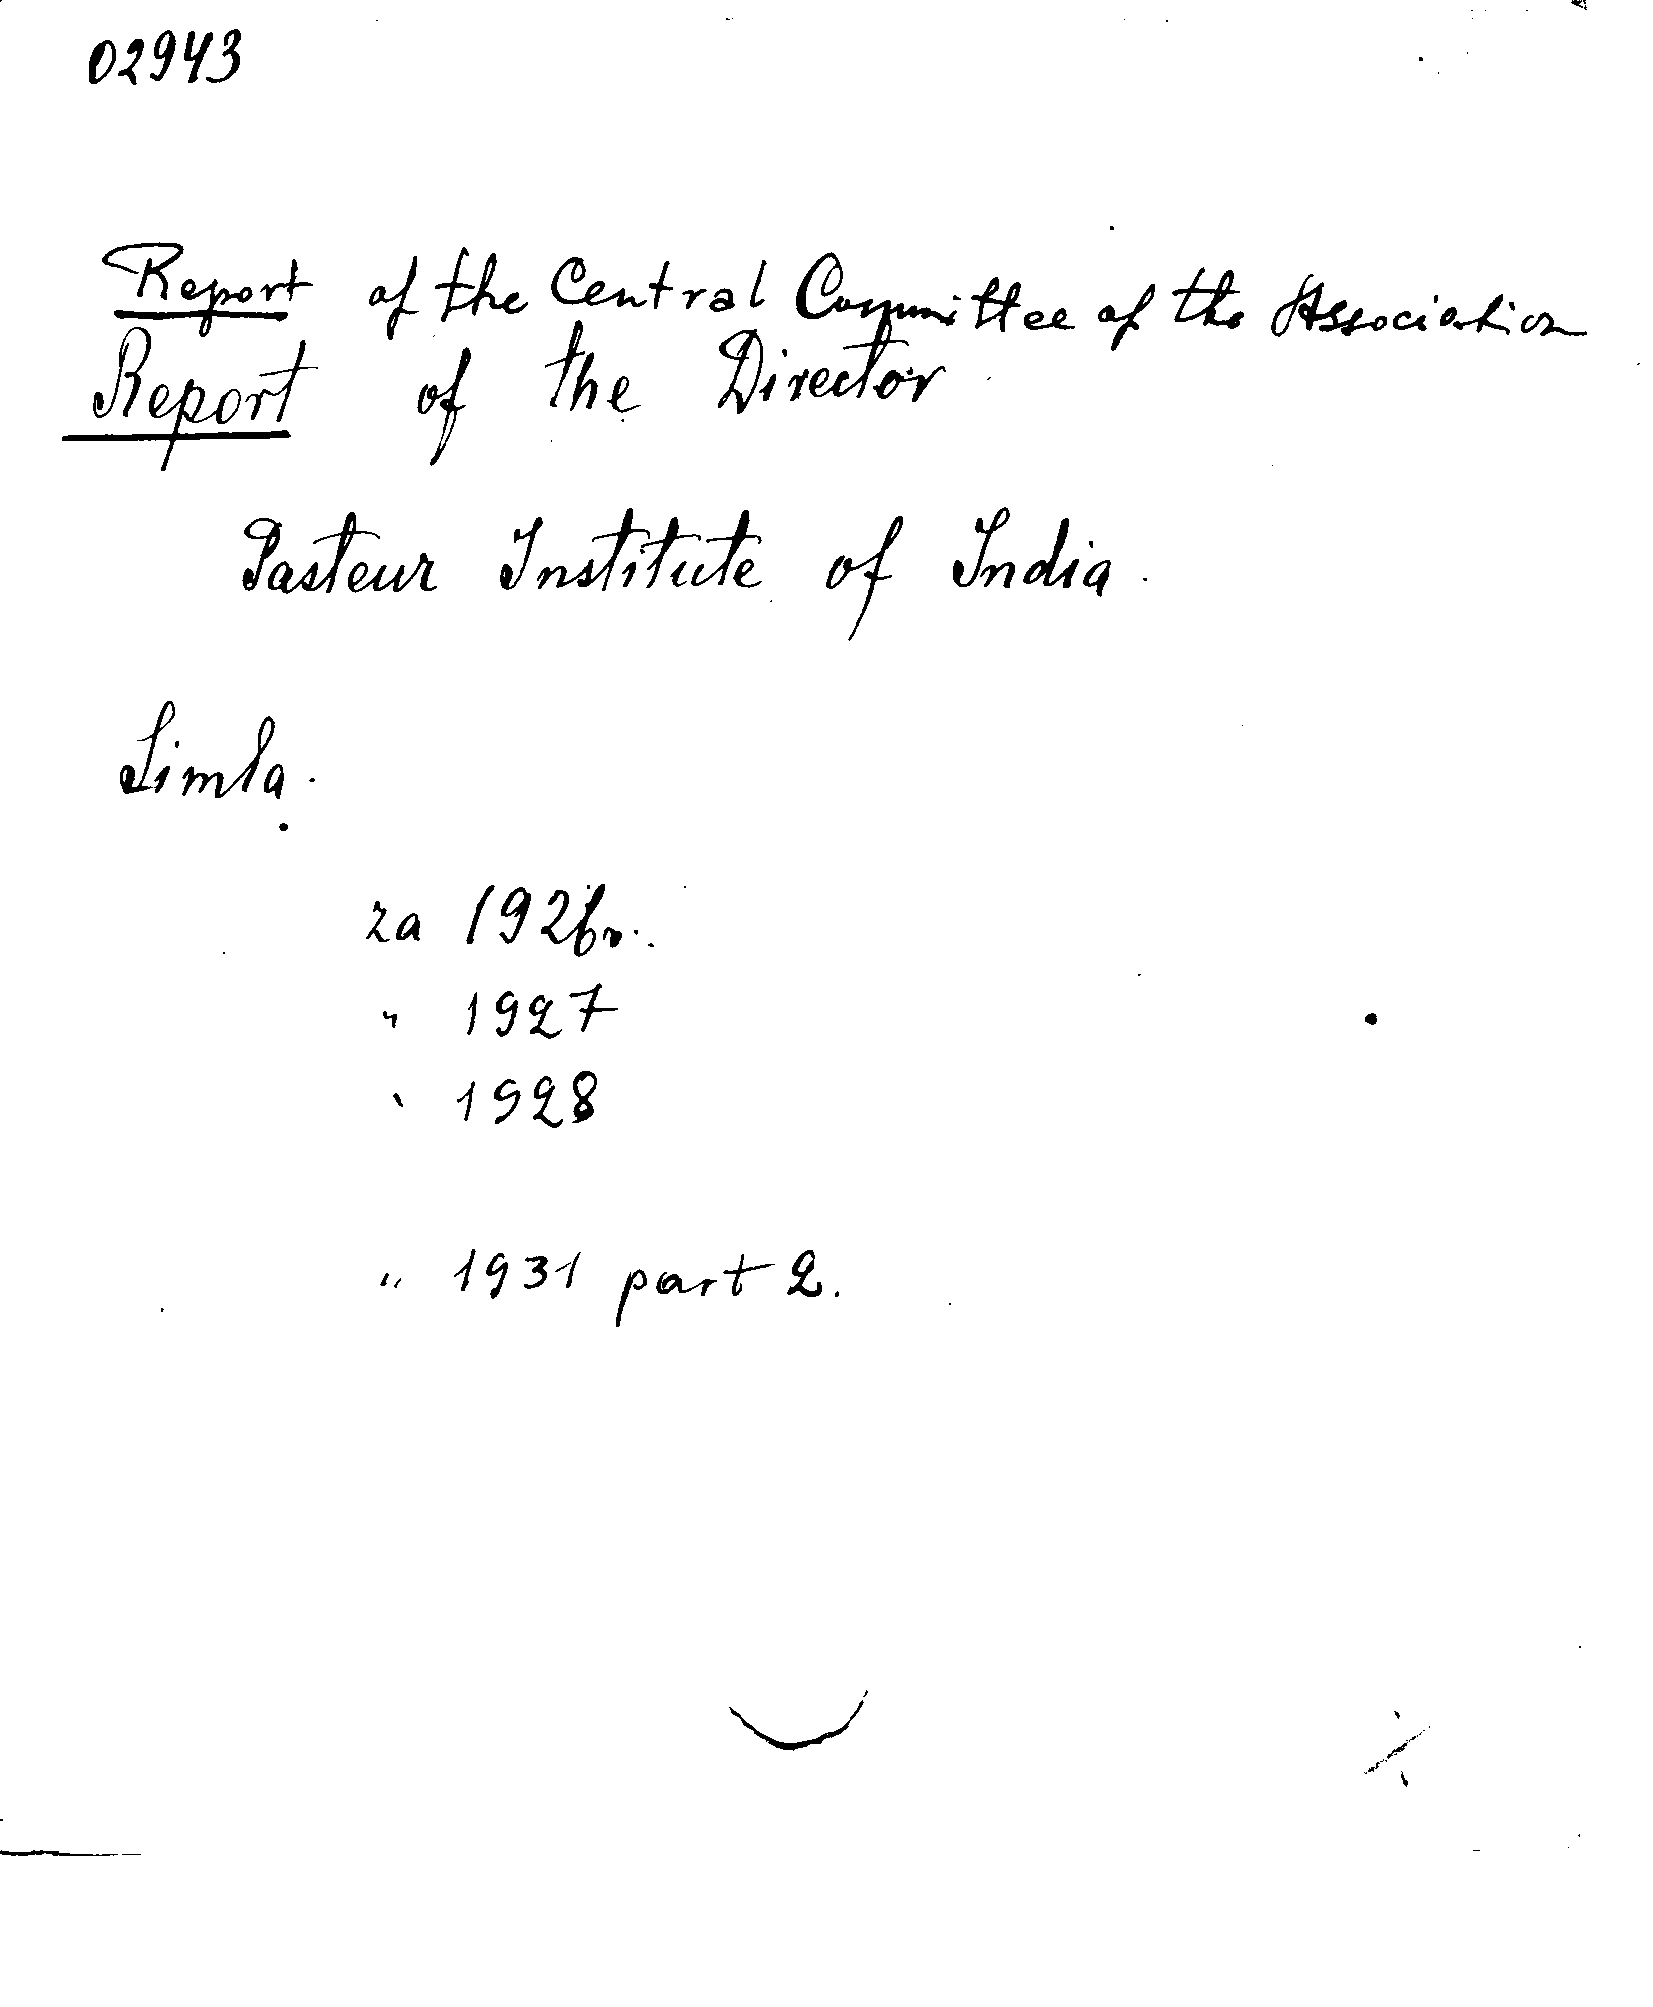 02943
Report of the Central Committee of the Association
Report of the Director
Pasteur Institute of India.
Simla.
za 1926 r.
„ 1927
„ 1928
„ 1931 part 2.